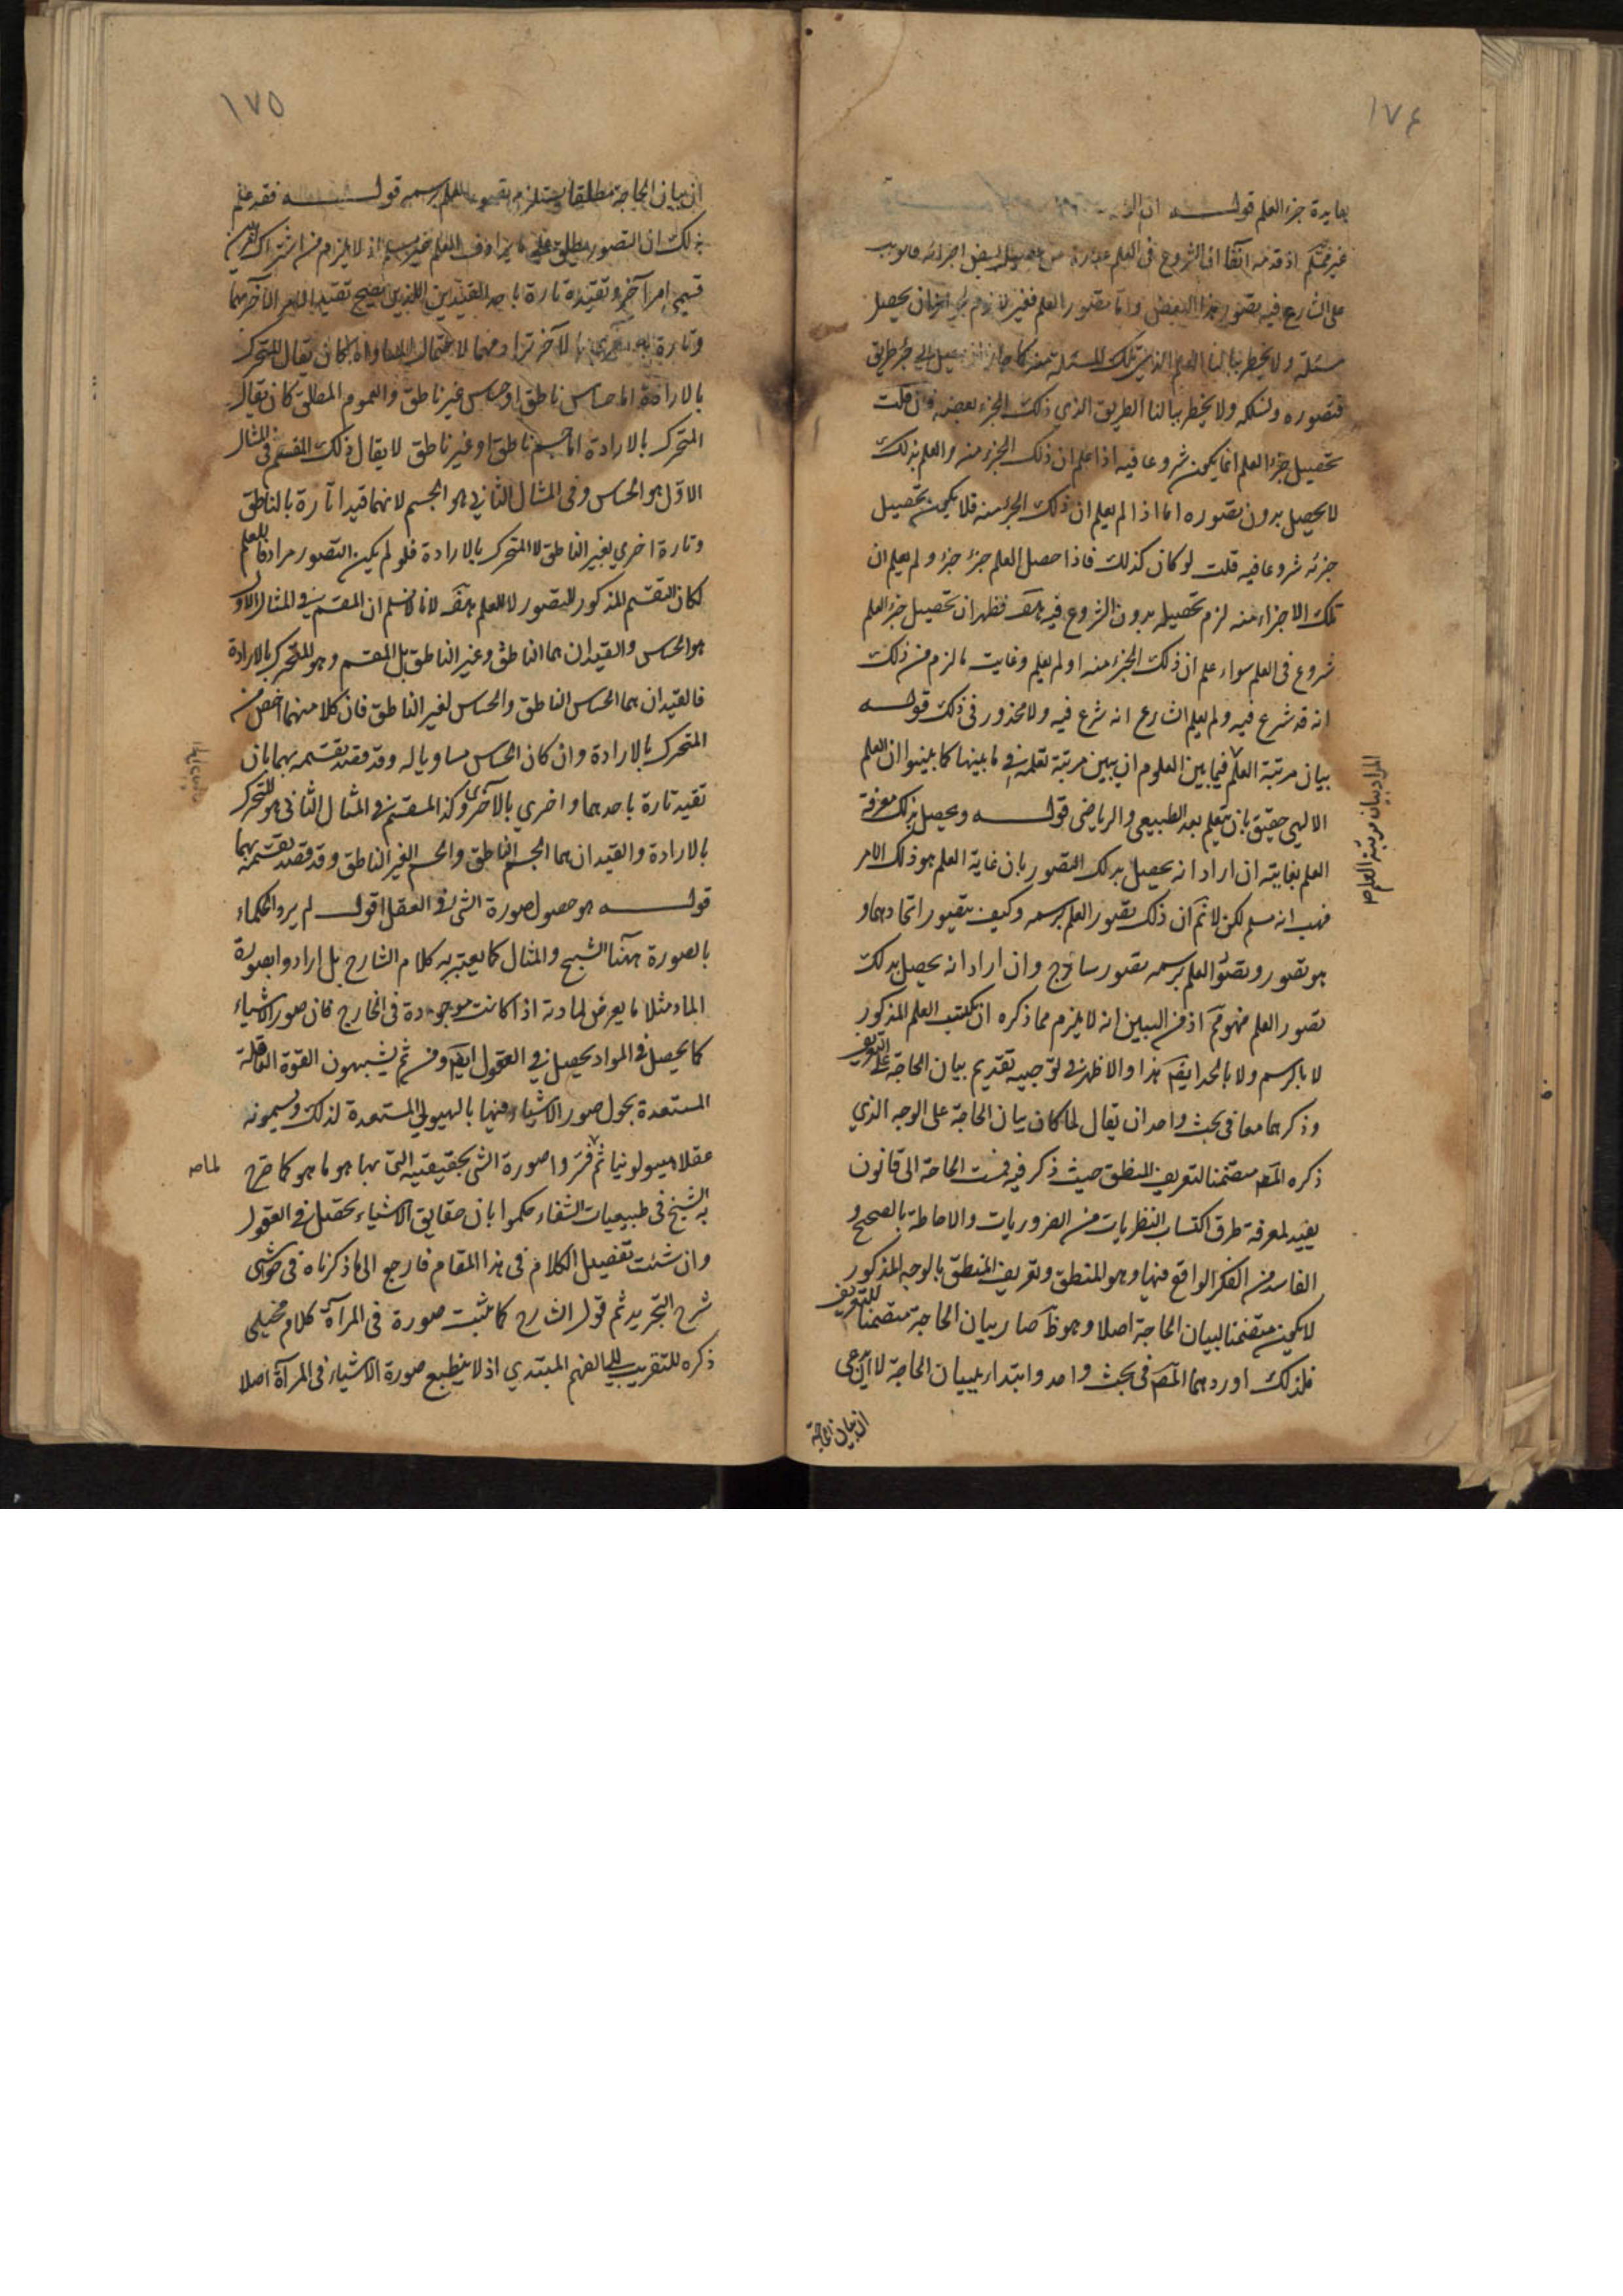 ١٧٤
بمايدة جزء العلم قوله
غير مسلم اذ قد مر آنفا ان الشروع فى العلم عبارة عن تحصيل بعض اجزائه فالواجب
على الشارع فيه تصور هذا البعض واما تصور العلم فغير لازم ان يحصل
مسئلة ولا يخطر ببالنا العلم الذى تلك المسئلة منه كما جاز ان جزء طريق
فتصوره ونسلكه ولا يخطر ببالنا الطريق الذي ذلك الجزء بعضه فان قلت
تحصيل جزء العلم انما يكون شروعا فيه اذا علم ان ذلك الجزء منه والعلم بذلك
لا يحصل بدون تصوره اما اذا لم يعلم ان ذلك الجزء منه فلا يكون تحصيل
جزئه شروعا فيه قلت لو كان كذلك فاذا حصل العلم جزءً جزءً ولم يعلم ان
تلك الاجزاء منه لزم تحصيله بدون الشروع فيه هف فظهر ان تحصيل جزء العلم
شروع فى العلم سواء علم ان ذلك الجزء منه او لم يعلم وغاية ما لزم من ذلك
انه قد شرع فيه ولم يعلم الشارع انه شرع فيه ولا محذور فى ذلك قوله
بيان مرتبة العلم فيما بين العلوم ان يبين مرتبة تعلمه فى ما بينها كما بينوا ان العلم
المراد ببيان مرتبة العلم
الالهى حقيق بان يتعلم بعد الطبيعى والرياضى قوله ويحصل بذلك معرفة
العلم بغايته ان اراد انه يحصل بذلك التصور بان غاية العلم هو ذلك الامر
فهب انه مسلم لكن لا نم ان ذلك تصور العلم برسمه وكيف يتصور اتحادهما و
هو تصور وتصور العلم برسمه تصور ساذج وان اراد انه يحصل بذلك
تصور العلم فهو مم اذ من البين انه لا يلزم مما ذكره ان يكتسب العلم المذكور
لا بالرسم ولا بالحد ايضا هذا والاظهر فى توجيه تقديم بيان الحاجة على التعريف
وذكرهما معا فى بحث واحد ان يقال لما كان بيان الحاجة على الوجه الذي
ذكره المص متضمنا لتعريف المنطق حيث ذكر فيه فمست الحاجة الى قانون
يفيد لمعرفة طرق اكتساب النظريات من الضروريات والاحاطة بالصحيح و
الفاسد من الفكر الواقع فيها وهو المنطق وتعريف المنطق بالوجه المذكور
لا يكون متضمنا لبيان الحاجة اصلا وهو ظ صار بيان الحاجة متضمنا للتعريف
فلذلك اوردهما المص فى بحث واحد وابتداء ببيان الحاجة لا
ان بيان الحاجة
١٧٥
ان بيان الحاجة مطلقا يستلزم تصور العلم برسمه قوله فقد علم
بذلك ان التصور يطلق على ما يرادف العلم اذ لا يلزم من اشتراك
قسمى امر آخر وتقييده تارة باحد القيدين اللذين يصح تقييد الامر الآخر بهما
وتارة الآخر ترادفهما لاحتمال المساواة كما ان يقال المتحرك
بالارادة اما حساس ناطق او حساس غير ناطق والعموم المطلق كان يقال
المتحرك بالارادة اما جسم ناطق او غير ناطق لا يقال ذلك المقسم فى المثال
الاول هو الحساس وفى المثال الثانى هو الجسم لانهما قيدا تارة بالناطق
وتارة اخري بغير الناطق لا المتحرك بالارادة فلو لم يكن التصور مرادفا للعلم
لكان التقسيم المذكور للتصور لا للعلم هف لانا لا نسلم ان المقسم فى المثال الاول
هو الحساس والقيدان هما الناطق وغير الناطق بل المقسم وهو المتحرك بالارادة
فالقيدان هما الحساس الناطق والحساس الغير الناطق فان كلا منهما اخص من
المتحرك بالارادة وان كان الحساس مساويا له وقد قصد تقسيمه بهما بان
تقيد تارة باحدهما واخري بالآخري وكذا المقسم فى المثال الثانى هو المتحرك
بالارادة والقيدان هما الجسم الناطق والجسم الغير الناطق وقد قصد تقسيمه بهما
قوله هو حصول صورة الشئ فى العقل اقول لم يرد الحكماء
بالصورة ههنا الشبح والمثال كما يعتبر به كلام الشارح بل ارادوا بصورة
الماء مثلا ما يعرض لمادته اذا كانت موجودة فى الخارج فان صور الاشياء
كما يحصل فى المواد يحصل فى العقول ايضا ومن ثم يشبهون القوة العاقلة
المستعدة بحول صور الاشياء فيها بالهيولى المستعدة لذلك ويسمونه
عقلا هيولونيا ثم فسروا صورة الشئ بحقيقتيه التى بها هو ما هو كما صرح
به الشيخ فى طبيعيات الشفاء حكموا بان حقايق الاشياء يحصل فى العقول
وان شئت تفصيل الكلام فى هذا المقام فارجع الى ما ذكرناه فى حواشى
شرح التجريد ثم قول الشارح كما يثبت صورة فى المرآة كلام مخيلى
ذكره للتقريب الى فهم المبتدي اذ لا ينطبع صورة الاشياء فى المرآة اصلا